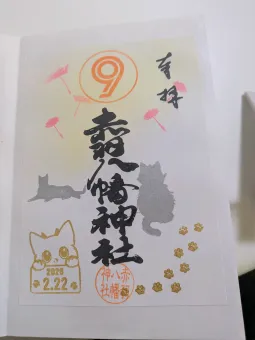 奉拝
9
赤羽八幡神社
2026
2.22
赤羽
八幡
神社